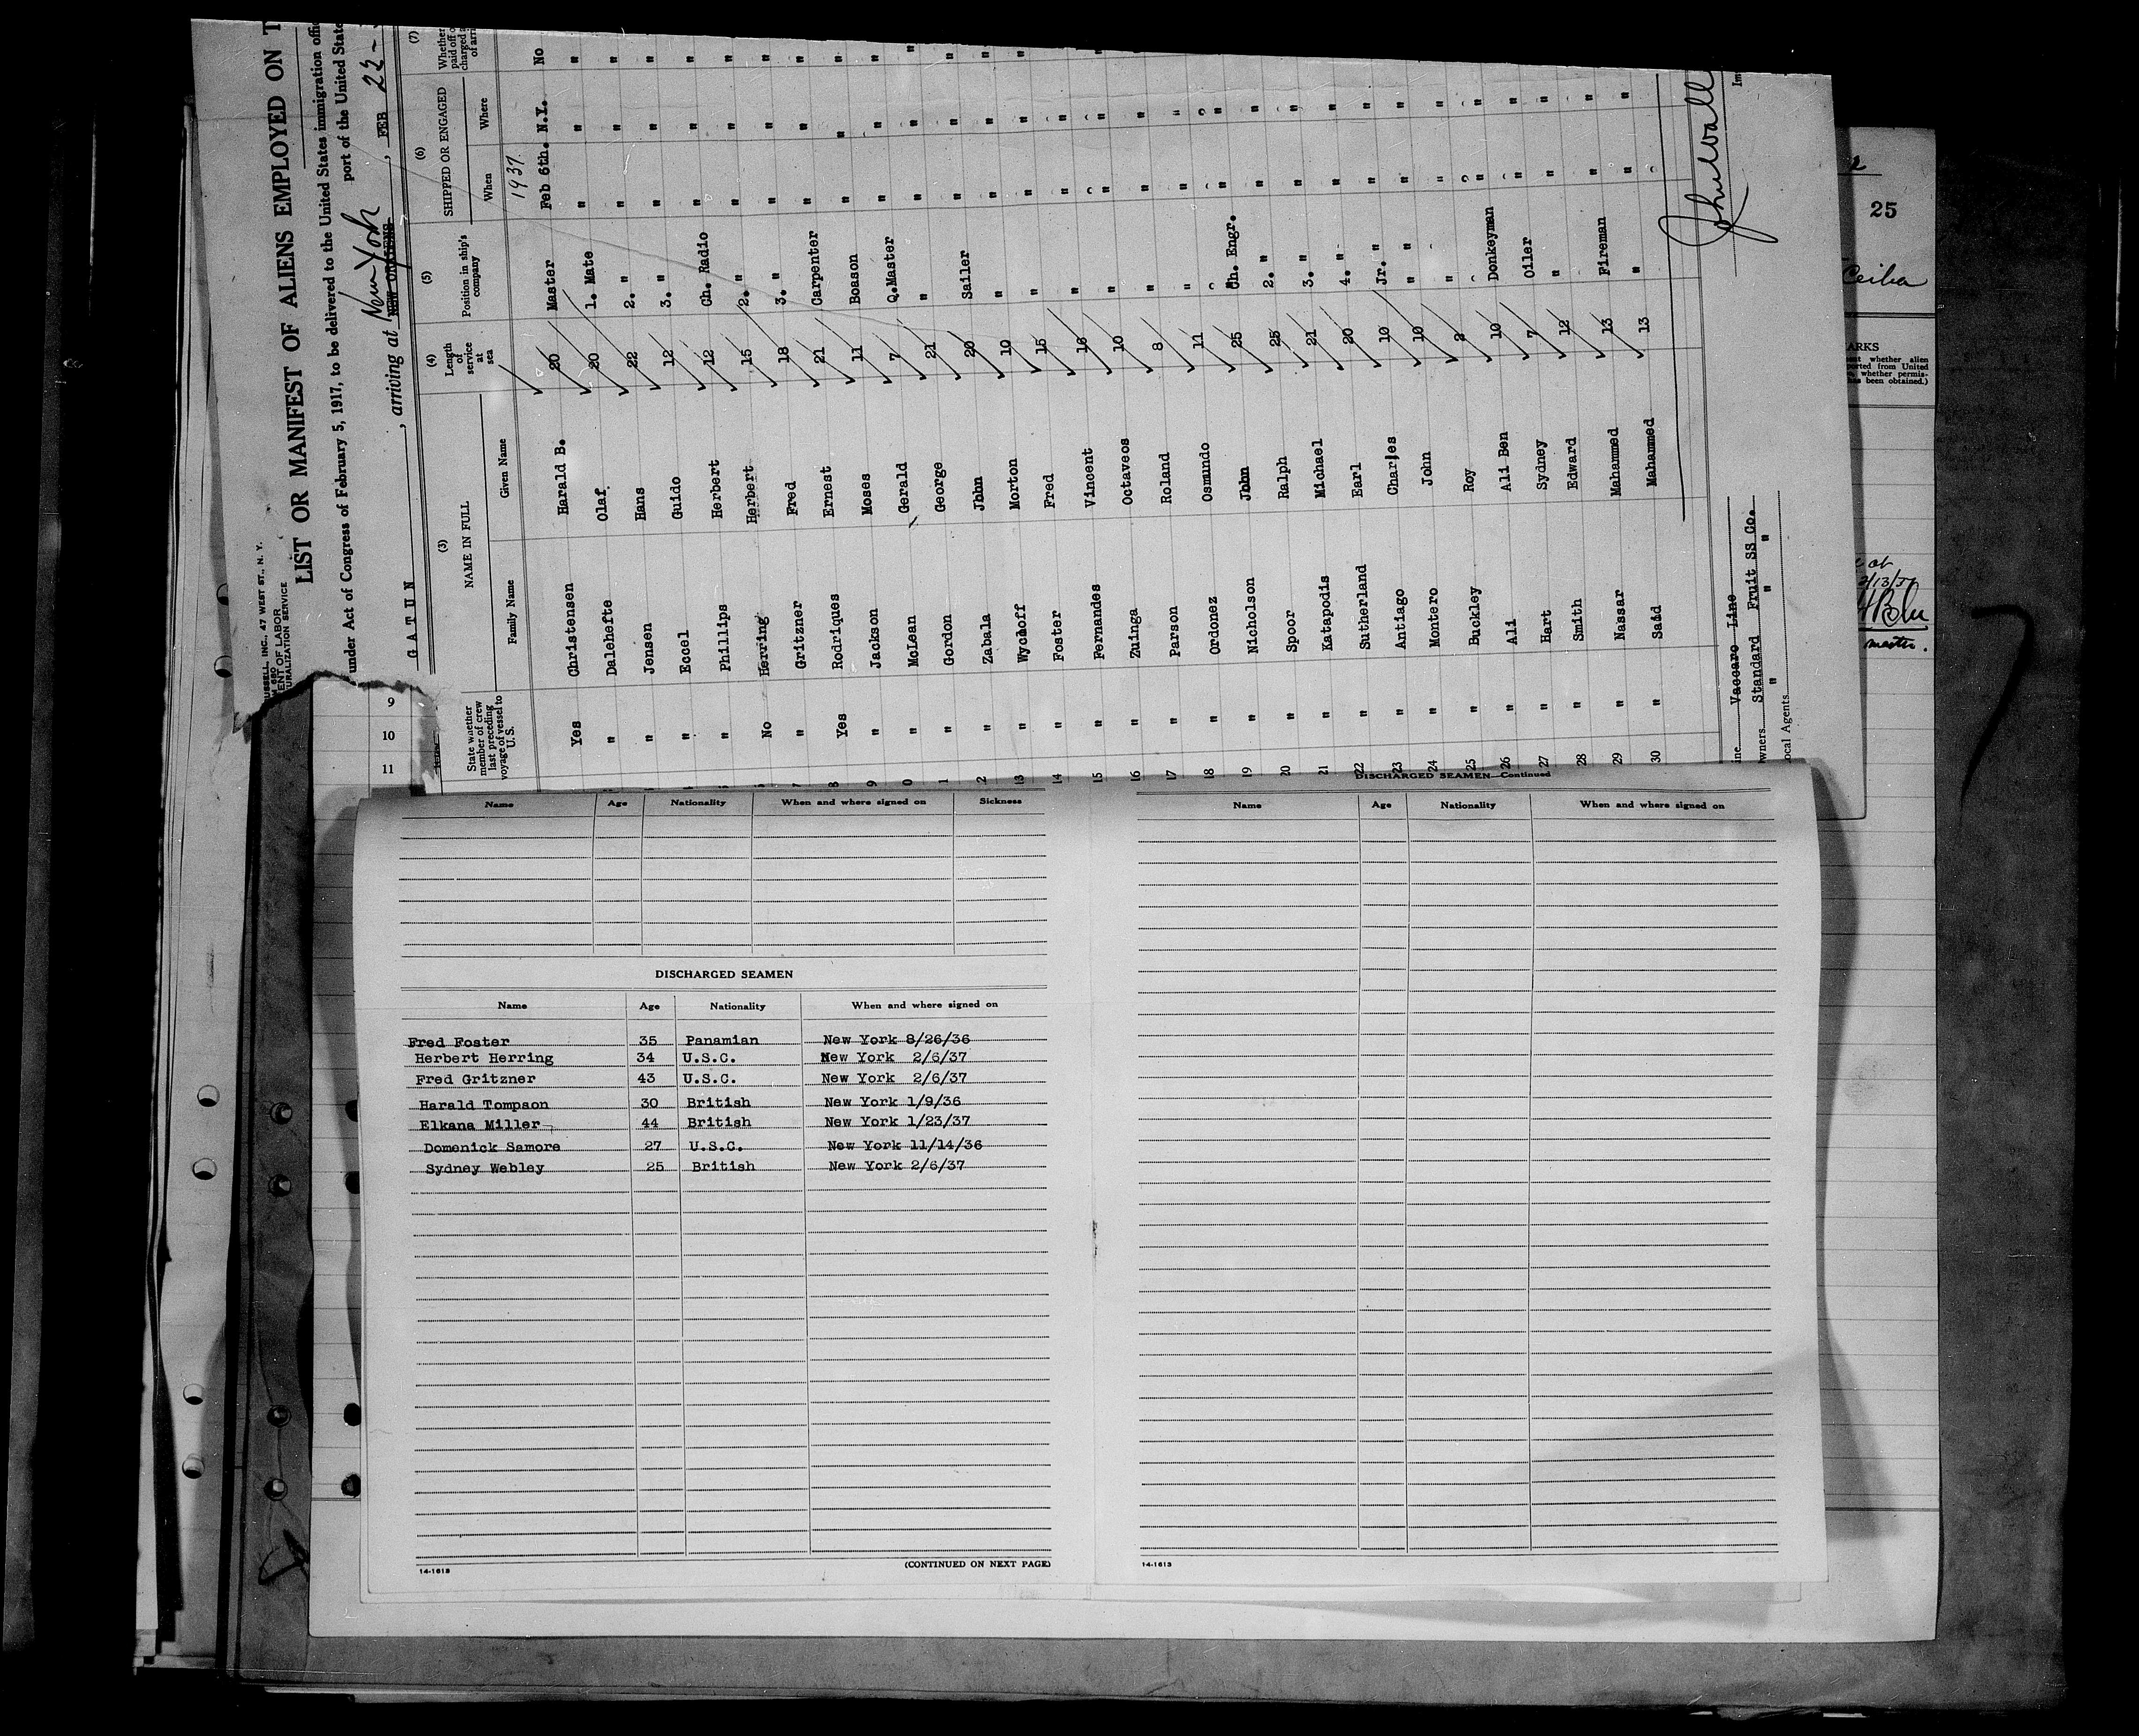 RUSSELL INC., 47 WEST ST., N. Y.
680
LABOR
SERVICE
LIST OR MANIFEST OF ALIENS EMPLOYED ON
under Act of Congress of February 5, 1917, to be delivered to the United States immigration
port of the United
GATUN, arriving at NEW ORLEANS New York, FEB 23-
(3) (4) (5) (6) (7)
State whether member of crew last preceding voyage of vessel to U.S. NAME IN FULL Length of service at sea Position in ship's company SHIPPED OR ENGAGED Whether
Family Name Given Name When Where
1937
Yes Christensen Harald B. 20 Master Feb 6th. N.Y. No
" Dalehefte Olaf 20 1. Mate " " "
" Jensen Hans 22 2. " " " "
" Eccel Guido 12 3. " " " "
" Phillips Herbert 12 Ch. Radio " " "
No Herring Herbert 15 2. " " " "
" Gritzner Fred 18 3. " " " "
8 Yes Rodriques Ernest 21 Carpenter " " "
9 " Jackson Moses 11 Boason " " "
0 " McLean Gerald 7 Q.Master " " "
1 " Gordon George 21 " " " "
2 " Zabala John 20 Sailer " " "
13 " Wyckoff Morton 10 " " " "
14 " Foster Fred 15 " " "
15 " Fernandes Vincent 16 " " "
16 " Zuinga Octaveos 10 " " "
17 " Parson Roland 8 " " "
18 " Ordonez Osmundo 11 " " "
19 " Nicholson John 25 Ch. Engr. " "
20 " Spoor Ralph 25 2. " " "
21 " Katapodis Michael 21 3. " " "
22 " Sutherland Earl 20 4. " " "
23 " Antiago Charles 10 Jr. " " "
24 " Montero John 10 " " "
25 " Buckley Roy 2 " " "
26 " Ali Ali Ben 10 Donkeyman " "
27 " Hart Sydney 7 Oiler " "
28 " Smith Edward 12 " " "
29 " Nassar Mahammed 13 Fireman " "
30 " Said Mahammed 13 " " "
Vaccaro Line
Standard Fruit SS Co.
Local Agents " " "
9
10
11
25
Ceiba
master.
Name Age Nationality When and where signed on Sickness
DISCHARGED SEAMEN
Name Age Nationality When and where signed on
Fred Foster 35 Panamian New York 8/26/36
Herbert Herring 34 U.S.C. New York 2/6/37
Fred Gritzner 43 U.S.C. New York 2/6/37
Harald Tompson 30 British New York 1/9/36
Elkana Miller 44 British New York 1/23/37
Domenick Samore 27 U.S.C. New York 11/14/36
Sydney Webley 25 British New York 2/6/37
(CONTINUED ON NEXT PAGE)
14-1613
DISCHARGED SEAMEN—Continued
Name Age Nationality When and where signed on
14-1613